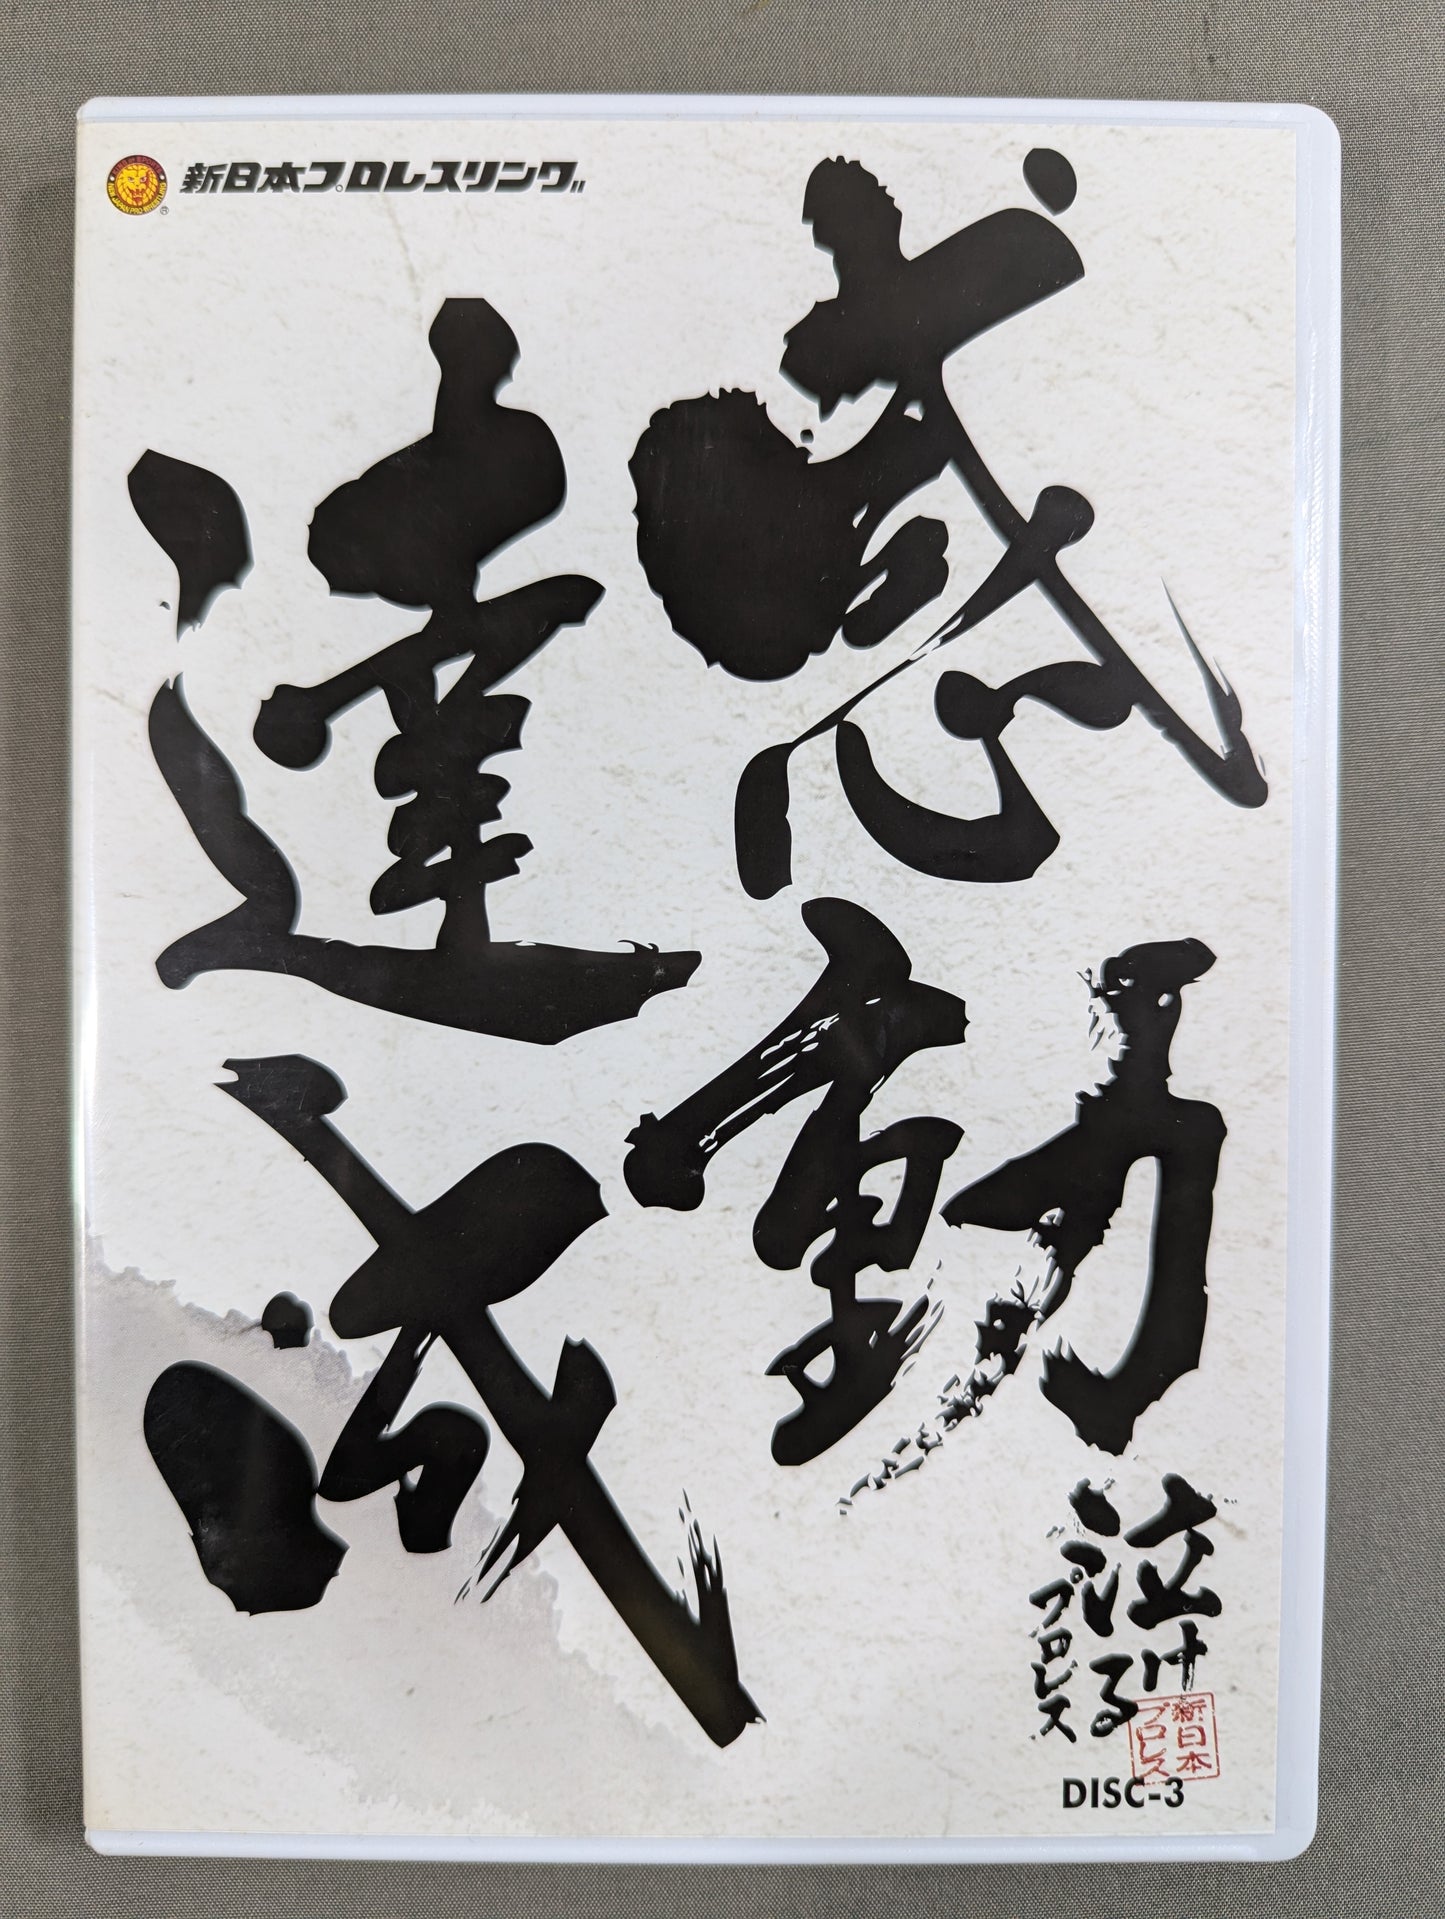 新日本プロレスリング
感動
達成
泣ける
プロレス
新日本
プロレス
DISC-3